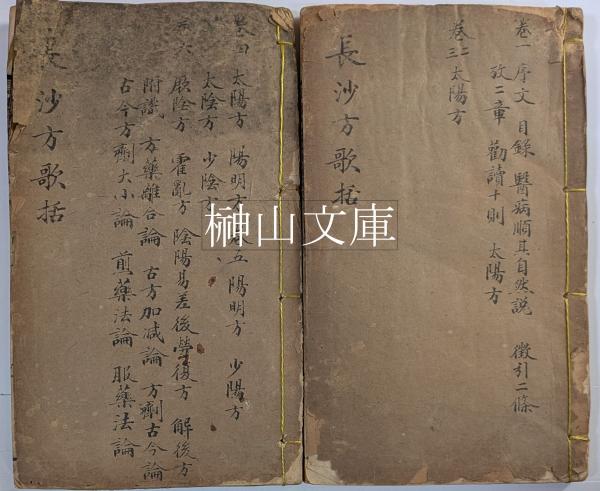 卷一 序文 目錄 醫病順其自然說 徵引二條
攷二章 勸讀十則 太陽方
卷二
三 太陽方
長沙方歌括
卷四 太陽方 陽明方 卷五 陽明方 少陽方
太陰方 少陰方
卷六 厥陰方 霍亂方 陰陽易差後勞復方 解後方
附識 方藥離合論 古方加减論 方劑古今論
古今方劑大小論 煎藥法論 服藥法論
長沙方歌括
榊山文庫